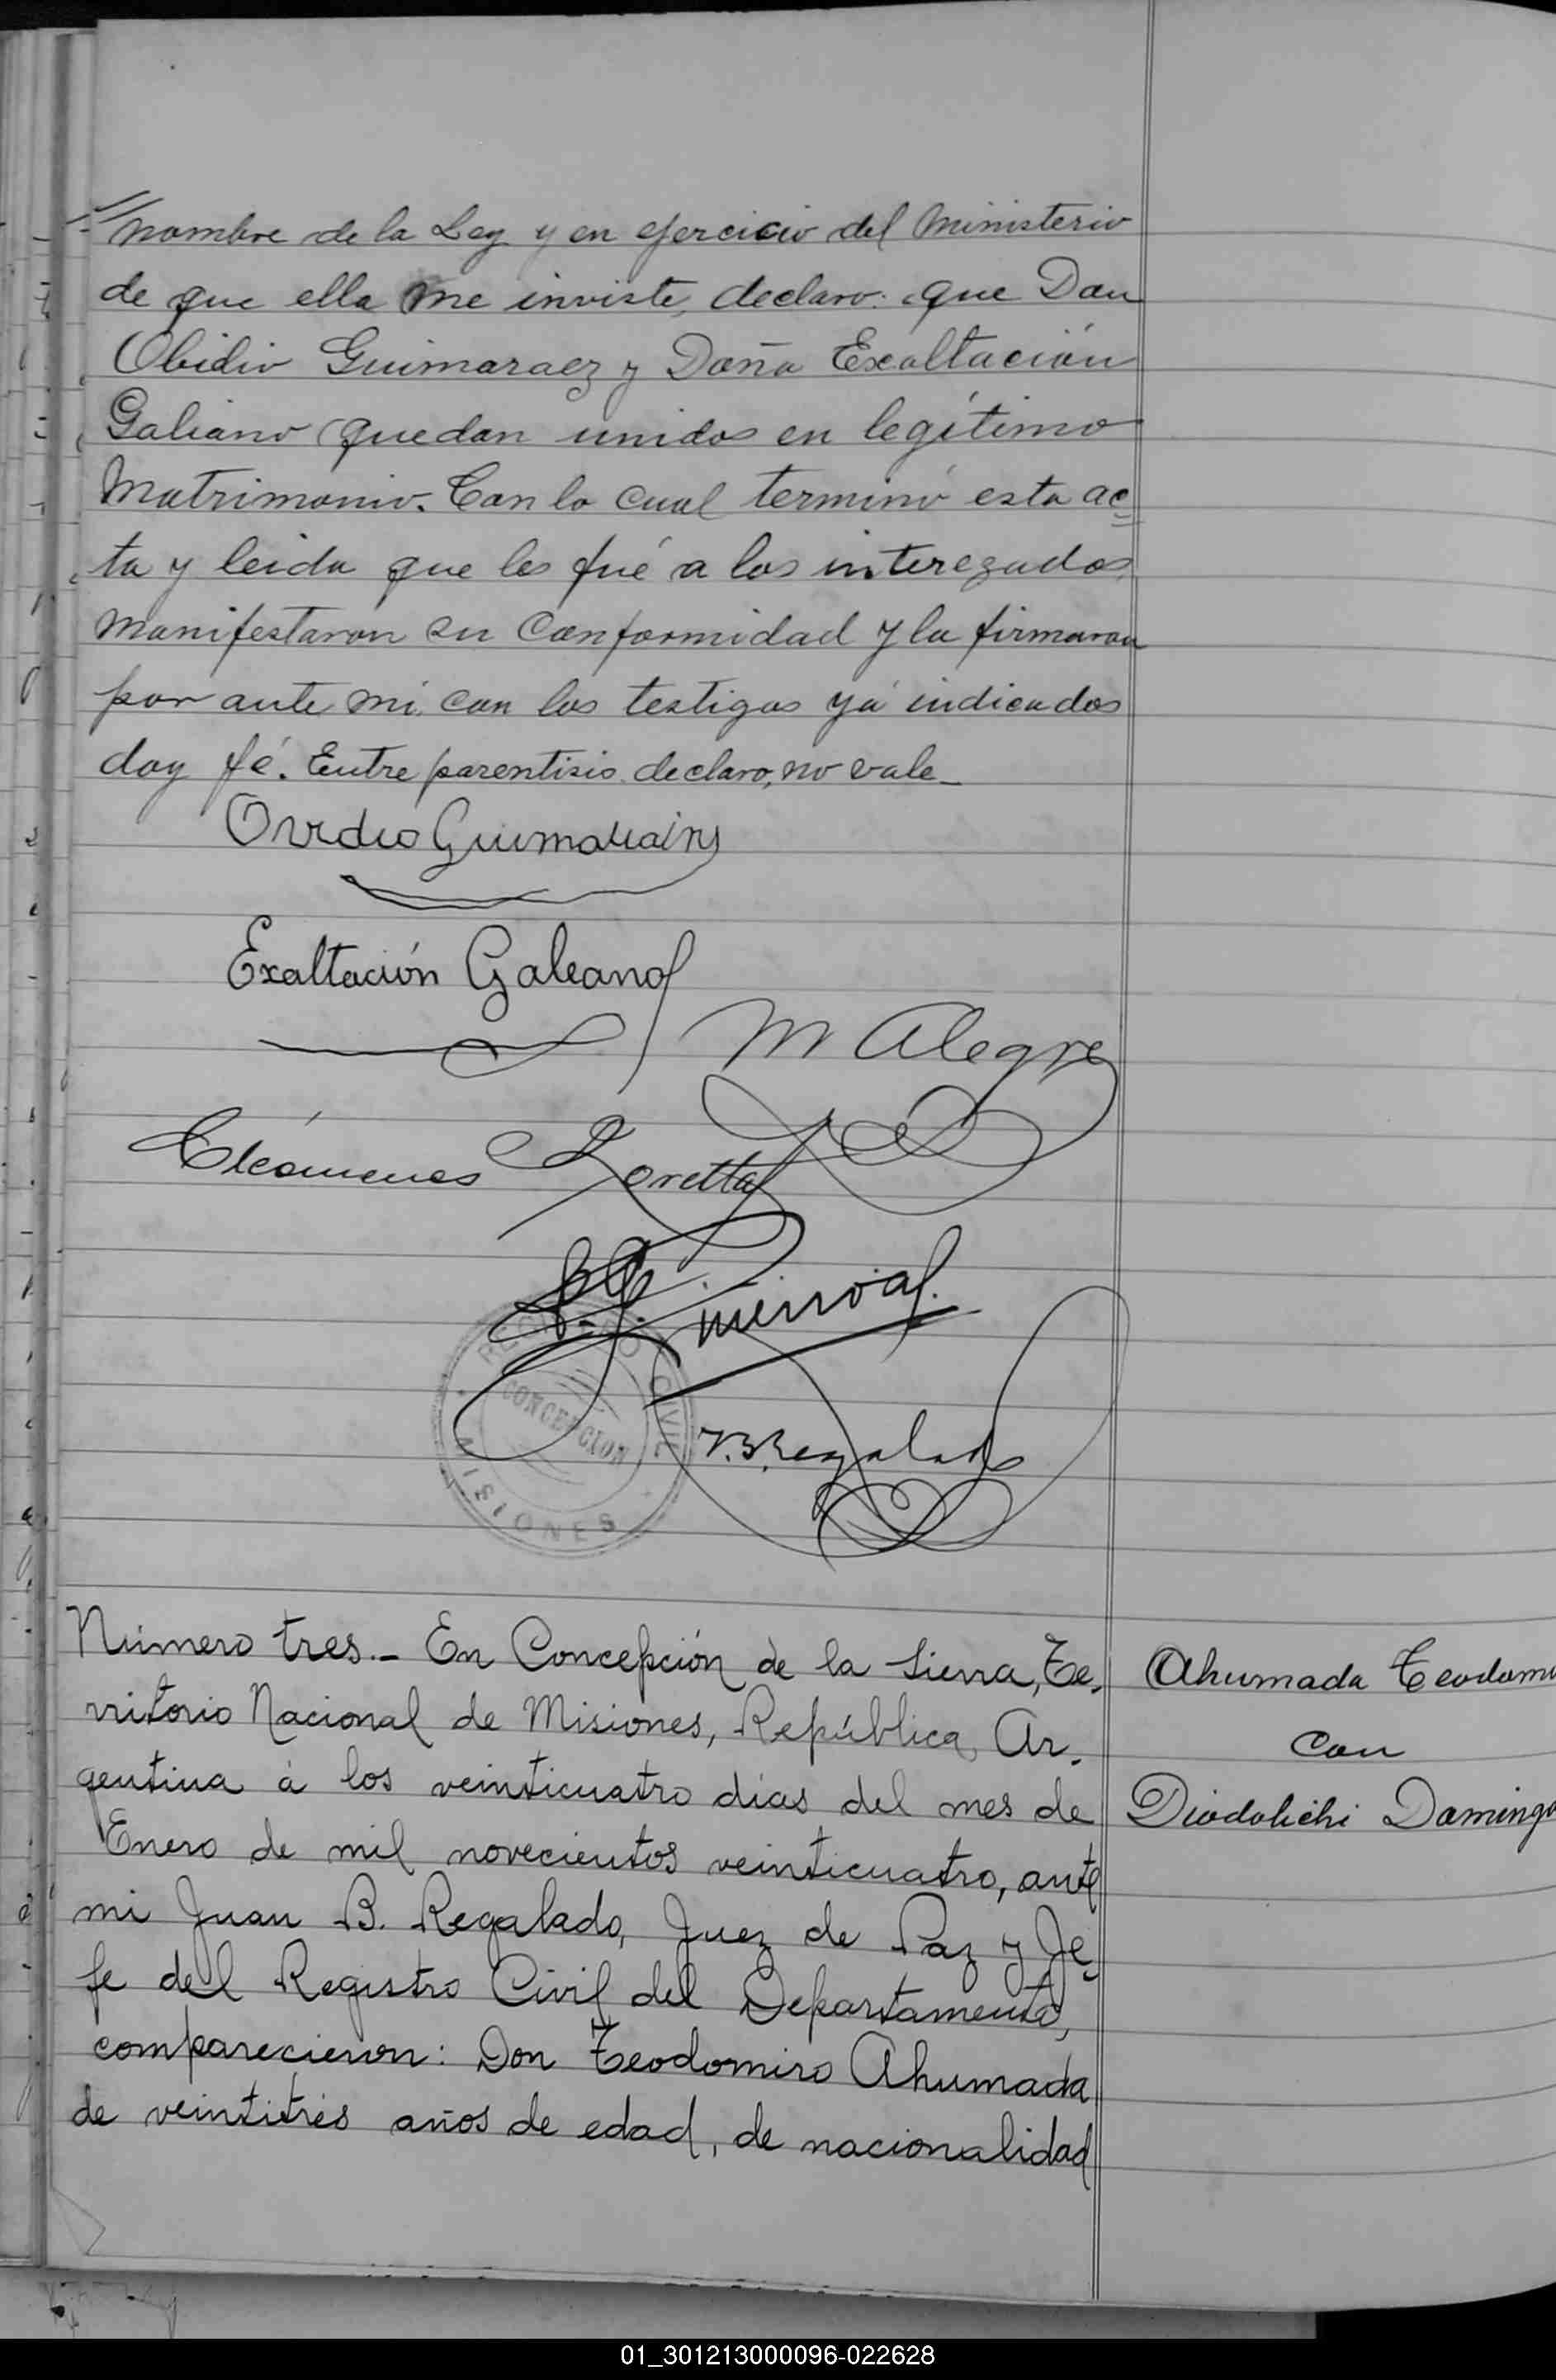 nombre de la Ley y en ejercicio del Ministerio
de que ella me inviste, declaro: que Don
Obidio Guimaraez y Doña Exaltación
Galiano (quedan unidos en legítimo
Matrimonio. Con lo cual terminó esta ac=
ta y leida que les fué a los interezados
manifestaron su Conformidad y la firmaron
por ante mi, con los testigos yá indicados
doy fé. Entre parentisis, declaro, no vale_
Ovidio Guimarains
Exaltación Galeano
M Alegre
Cleómenes Loretta
J.B. Regalado
REGISTRO CIVIL
CONCEPCION
MISIONES
Número tres._ En Concepción de la Sierra, Te-
rritorio Nacional de Misiones, República Ar-
gentina á los veinticuatro dias del mes de
Enero de mil novecientos veinticuatro, ante
mi Juan B. Regalado, Juez de Paz y Je=
fe del Registro Civil del Departamento,
comparecieron: Don Teodomiro Ahumada
de veintitrés años de edad, de nacionalidad
Ahumada Teodomi
con
Diodolichi Domingo
01_301213000096-022628